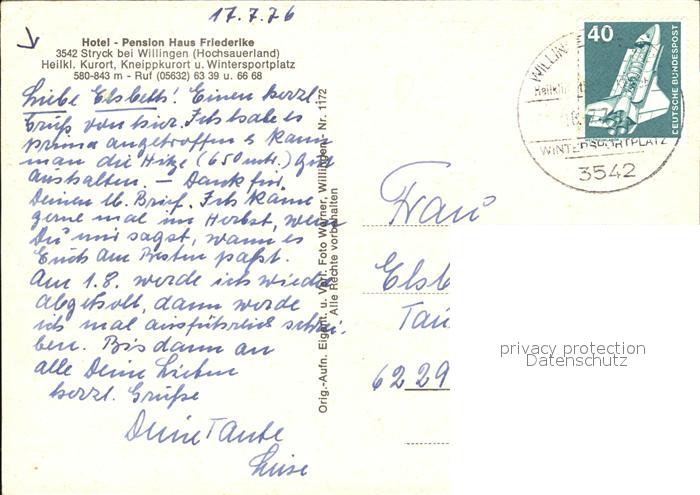 17.7.76
Hotel - Pension Haus Friederike
3542 Stryck bei Willingen (Hochsauerland)
Heilkl. Kurort, Kneippkurort u. Wintersportplatz
580-843 m - Ruf (05632) 63 39 u. 66 68
Liebe Elsbeth! Einen herzl.
Gruß von hier. Ich habe es
prima angetroffen & kann
man die Hitze (650 mtr.) gut
aushalten. — Dank für
Deinen lb. Brief. Ich käme
gerne mal im Herbst, wenn
Du mir sagst, wann es
Euch am Besten paßt.
Am 1.8. werde ich wieder
abgeholt, dann werde
ich mal ausführlich schrei-
ben. Bis dann an
alle Deine Lieben
herzl. Grüße
Deine Tante
Luise
Orig.-Aufn. Eigent. u. Verl. Foto Warner, Willingen. Nr. 1172
Alle Rechte vorbehalten
40
DEUTSCHE BUNDESPOST
WILLINGEN
WINTERSPORTPLATZ
3542
Frau
Elsb
Tau
6229
privacy protection
Datenschutz